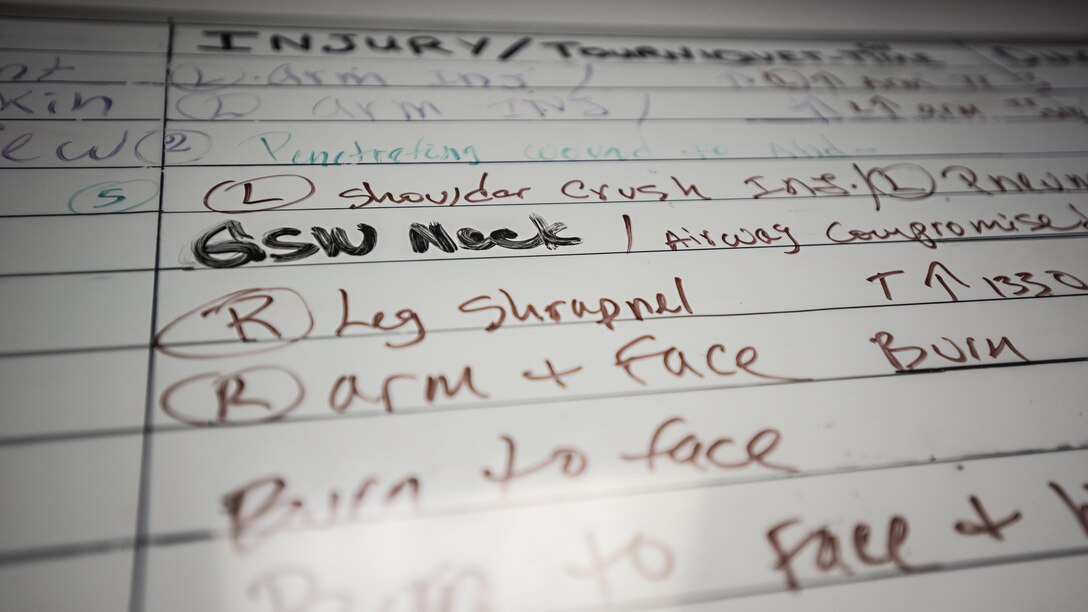 INJURY/TOURNIQUET TIME
(L) arm INJ / ↑ arm
kin (L) arm INJ /
ew (2) Penetrating wound to Abd-
(5) (L) Shoulder Crush INJ./(L) Pneum
GSW Neck / Airway Compromised
(R) Leg Shrapnel T ↑ 1330
(R) arm + Face Burn
Burn to face
Burn to Face +